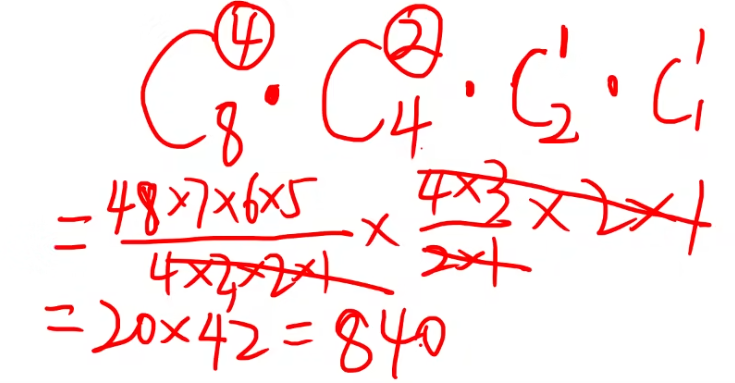 C₈⁴ · C₄² · C₂¹ · C₁¹
= 48×7×6×5 / 4×3×2×1 × 4×3 / 2×1 × 2×1
= 20×42 = 840